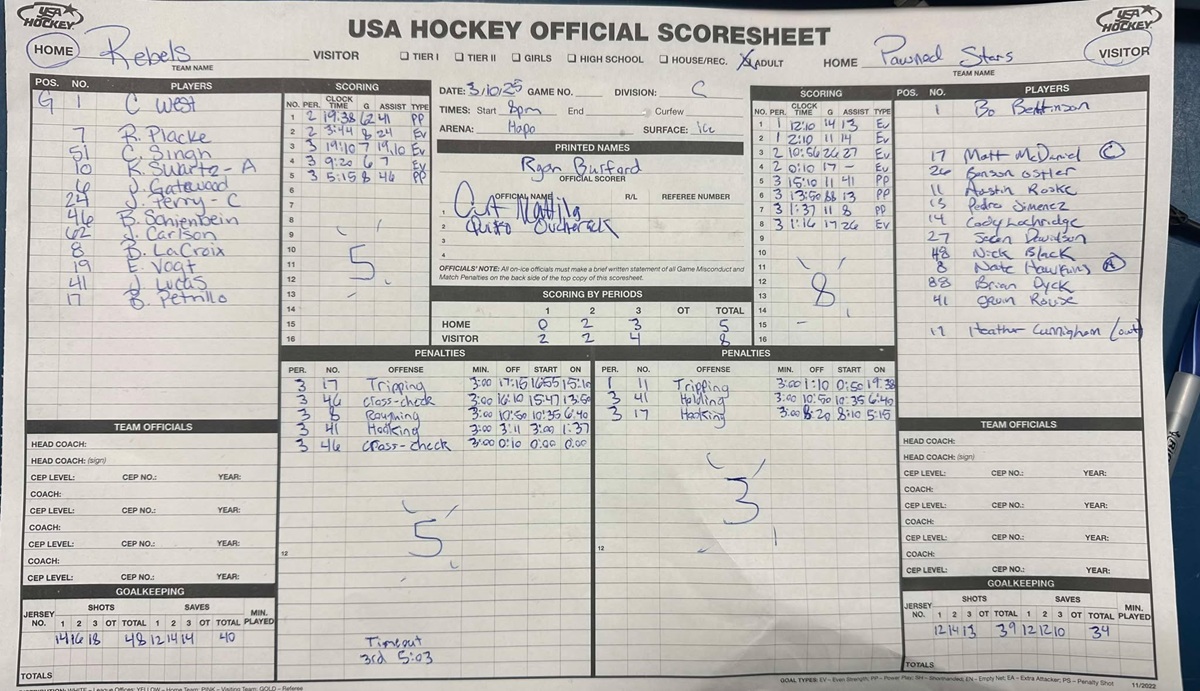 USA HOCKEY OFFICIAL SCORESHEET
USA HOCKEY
USA HOCKEY
HOME Rebels VISITOR
TEAM NAME
☐ TIER I ☐ TIER II ☐ GIRLS ☐ HIGH SCHOOL ☐ HOUSE/REC. ☒ ADULT
HOME Pawned Stars VISITOR
TEAM NAME
POS. NO. PLAYERS
G 1 C West
7 R. Placke
51 C. Singh
10 K. Swartz - A
6 J. Gatewood
24 J. Perry - C
46 B. Schienbein
62 J. Carlson
8 B. LaCroix
19 E. Vogt
41 J. Lucas
17 B. Petrillo
SCORING
NO. PER. CLOCK TIME G ASSIST TYPE
1 2 19:38 62 41 PP
2 2 3:44 8 24 Ev
3 3 19:10 7 19,10 Ev
4 3 9:20 6 7 Ev
5 3 5:15 8 46 PP
6
7
8
9
10
11
12
13
14
15
16
5
DATE: 3/10/25 GAME NO. DIVISION: C
TIMES: Start 8pm End Curfew
ARENA: Hapo SURFACE: ice
PRINTED NAMES
Ryan Burford
OFFICIAL SCORER
OFFICIAL NAME R/L REFEREE NUMBER
1
2
3
4
OFFICIALS' NOTE: All on-ice officials must make a brief written statement of all Game Misconduct and
Match Penalties on the back side of the top copy of this scoresheet.
SCORING BY PERIODS
1 2 3 OT TOTAL
HOME 0 2 3 5
VISITOR 2 2 4 8
SCORING
NO. PER. CLOCK TIME G ASSIST TYPE
1 1 12:10 14 13 Ev
2 1 2:10 11 14 Ev
3 2 10:56 26 27 Ev
4 2 0:10 17 - Ev
5 3 15:10 11 41 PP
6 3 13:50 88 13 PP
7 3 1:37 11 8 PP
8 3 1:16 17 26 Ev
9
10
11
12
13
14
15
16
8
POS. NO. PLAYERS
1 Bo Bettinson
17 Matt McDaniel C
26 Benson Ostler
11 Austin Rooke
13 Pedro Jimenez
14 Cody Lochridge
27 Sean Davidson
48 Nick Black
8 Nate Hawkins A
88 Brian Dyck
41 Gavin Rouse
12 Heather Cunnigham (out)
PENALTIES
PER. NO. OFFENSE MIN. OFF START ON.
3 17 Tripping 3:00 17:15 16:55 15:10
3 46 cross-check 3:00 16:10 15:47 13:50
3 8 Roughing 3:00 10:50 10:35 6:40
3 41 Hooking 3:00 3:11 3:00 1:37
3 46 cross-check 3:00 0:10 0:00 0:00
5
12
Timeout
3rd 5:03
PENALTIES
PER. NO. OFFENSE MIN. OFF START ON
1 11 Tripping 3:00 1:10 0:50 19:38
3 41 Holding 3:00 10:50 10:35 6:40
3 17 Hooking 3:00 8:20 8:10 5:15
3
12
TEAM OFFICIALS
HEAD COACH:
HEAD COACH: (sign)
CEP LEVEL: CEP NO.: YEAR:
COACH:
CEP LEVEL: CEP NO.: YEAR:
COACH:
CEP LEVEL: CEP NO.: YEAR:
COACH:
CEP LEVEL: CEP NO.: YEAR:
GOALKEEPING
JERSEY NO. SHOTS SAVES MIN. PLAYED
1 2 3 OT TOTAL 1 2 3 OT TOTAL
14 16 18 48 12 14 14 40
TOTALS
TEAM OFFICIALS
HEAD COACH:
HEAD COACH: (sign)
CEP LEVEL: CEP NO.: YEAR:
COACH:
CEP LEVEL: CEP NO.: YEAR:
COACH:
CEP LEVEL: CEP NO.: YEAR:
COACH:
CEP LEVEL: CEP NO.: YEAR:
GOALKEEPING
JERSEY NO. SHOTS SAVES MIN. PLAYED
1 2 3 OT TOTAL 1 2 3 OT TOTAL
12 14 13 39 12 12 10 34
TOTALS
DISTRIBUTION: WHITE – League Offices; YELLOW – Home Team; PINK – Visiting Team; GOLD – Referee
GOAL TYPES: EV – Even Strength; PP – Power Play; SH – Shorthanded; EN – Empty Net; EA – Extra Attacker; PS – Penalty Shot
11/2022